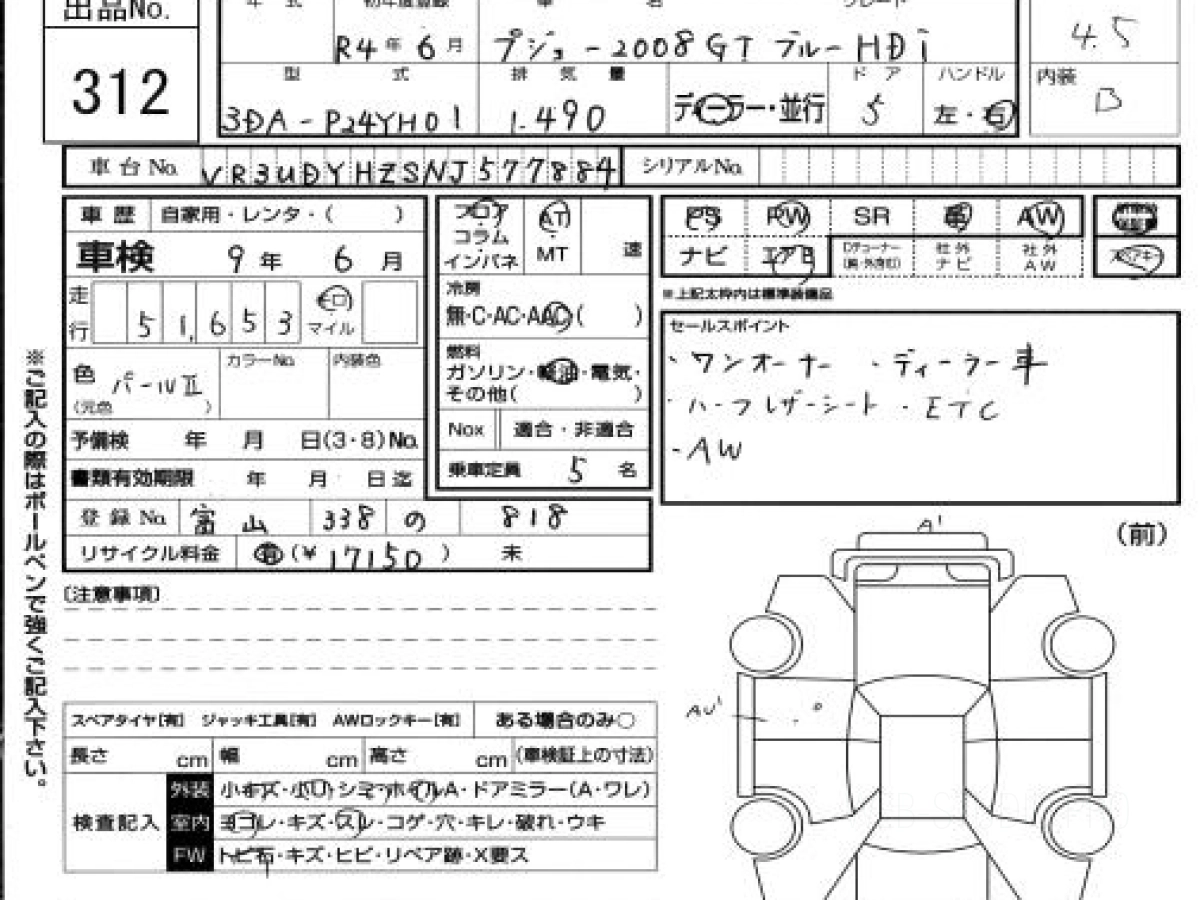 出品No.
312
年 式 初年度登録 車 名 グレード
R4年6月 プジョー2008 GT ブルーHDi 4.5
型 式 排 気 量 ドア ハンドル 内装
3DA-P24YH01 1.490 ディーラー・並行 5 左・右 B
車台No. VR3UDYHZSNJ577884 シリアルNo.
車歴 自家用・レンタ・( )
車検 9年 6月
走行 51,653 キロ マイル
色 パールⅡ (元色 ) カラーNo. 内装色
予備検 年 月 日(3・8)No.
書類有効期限 年 月 日迄
登録No. 富山 338 の 818
リサイクル料金 有(¥17150) 未
フロア・コラム・インパネ
AT・MT 速
冷房
無・C・AC・AAC( )
燃料
ガソリン・軽油・電気・
その他( )
Nox 適合・非適合
乗車定員 5 名
PS PW SR 革 AW
ナビ エアB Dチューナー 社外ナビ 社外AW スペアキー
※上記太枠内は標準装備品
セールスポイント
・ワンオーナー ・ディーラー車
・ハーフレザーシート ・ETC
・AW
※ご記入の際はボールペンで強くご記入下さい。
(注意事項)
スペアタイヤ[有] ジャッキ工具[有] AWロックキー[有] ある場合のみ○
長さ cm 幅 cm 高さ cm (車検証上の寸法)
検査記入
外装 小キズ・小凹・シミ・ホイルA・ドアミラー(A・ワレ)
室内 ヨゴレ・キズ・スレ・コゲ・穴・キレ・破れ・ウキ
FW トビ石・キズ・ヒビ・リペア跡・X要ス
(前)
A1
AU1